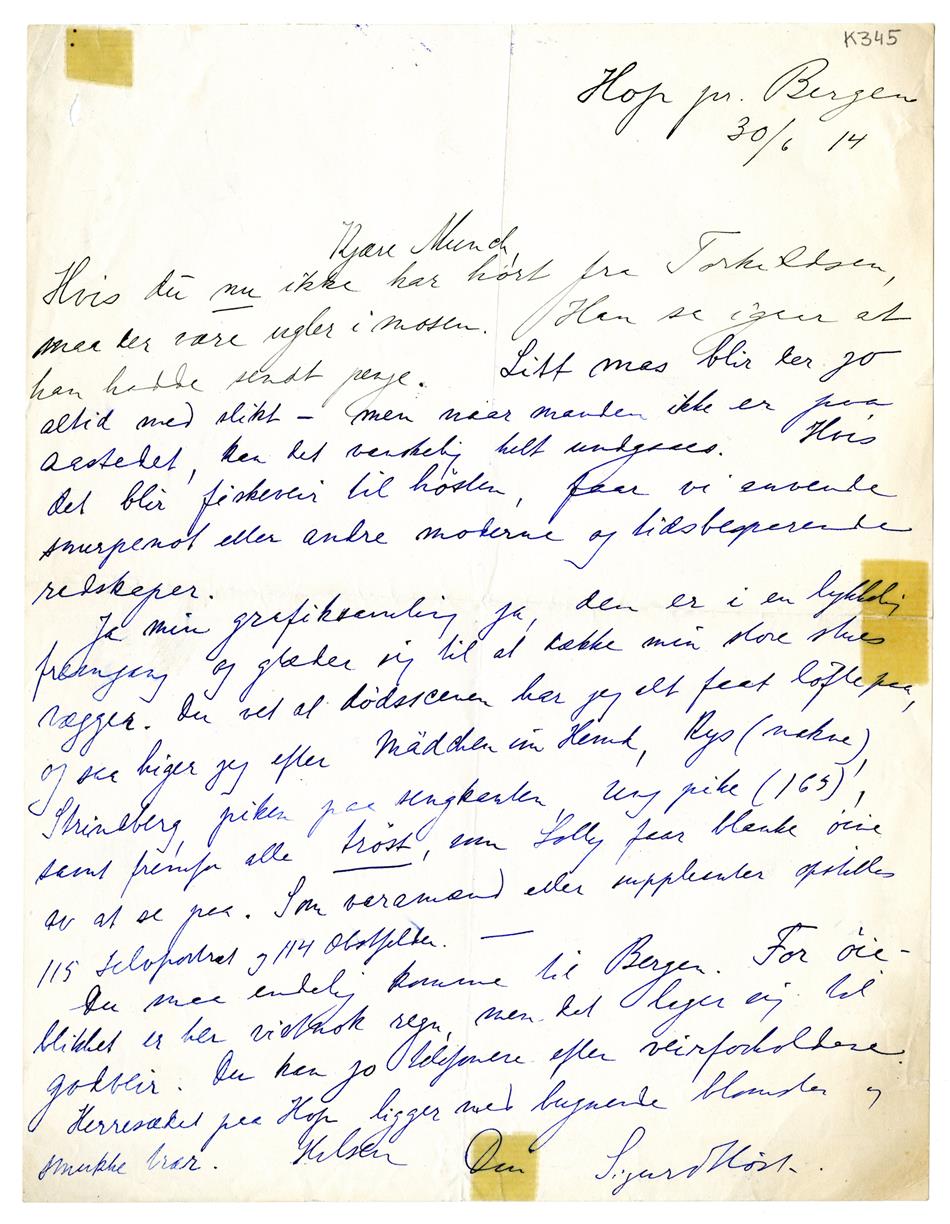 K345
Hop pr. Bergen
30/6 14
Kjære Munch,
Hvis du nu ikke har hørt fra Torkildsen,
maa der være ugler i mosen. Han sa igaar at
han hadde sendt penge. Litt mas blir der jo
altid med slikt – men naar manden ikke er paa
aastedet, kan det vanskelig helt undgaaes. Hvis
det blir fiskeveir til høsten, faar vi anvende
snurpenot eller andre moderne og tidsbesparende
redskaper.
Ja min grafiksamling ja, den er i en lykkelig
fremgang og glæder sig til at dække min store stues
vægger. Du vet at dødsscenen har jeg alt faat løfte paa,
og saa higer jeg efter Mädchen im Hemd, Kys (nakne),
Strindberg, piken paa sengkanten, Ung pike (165),
samt fremfor alle trøst, som Solly faar blanke øine
av at se paa. Som varamænd eller suppleanter opstilles
115 Selvportræt og 114 Obstfelder. —
Du maa endelig komme til Bergen. For øie-
blikket er her vistnok regn, men det lager sig til
godveir. Du kan jo telefonere efter veirforholdene.
Herresædet paa Hop ligger med bugnende blomster og
smukke trær. Hilsen Din Sigurd Høst.